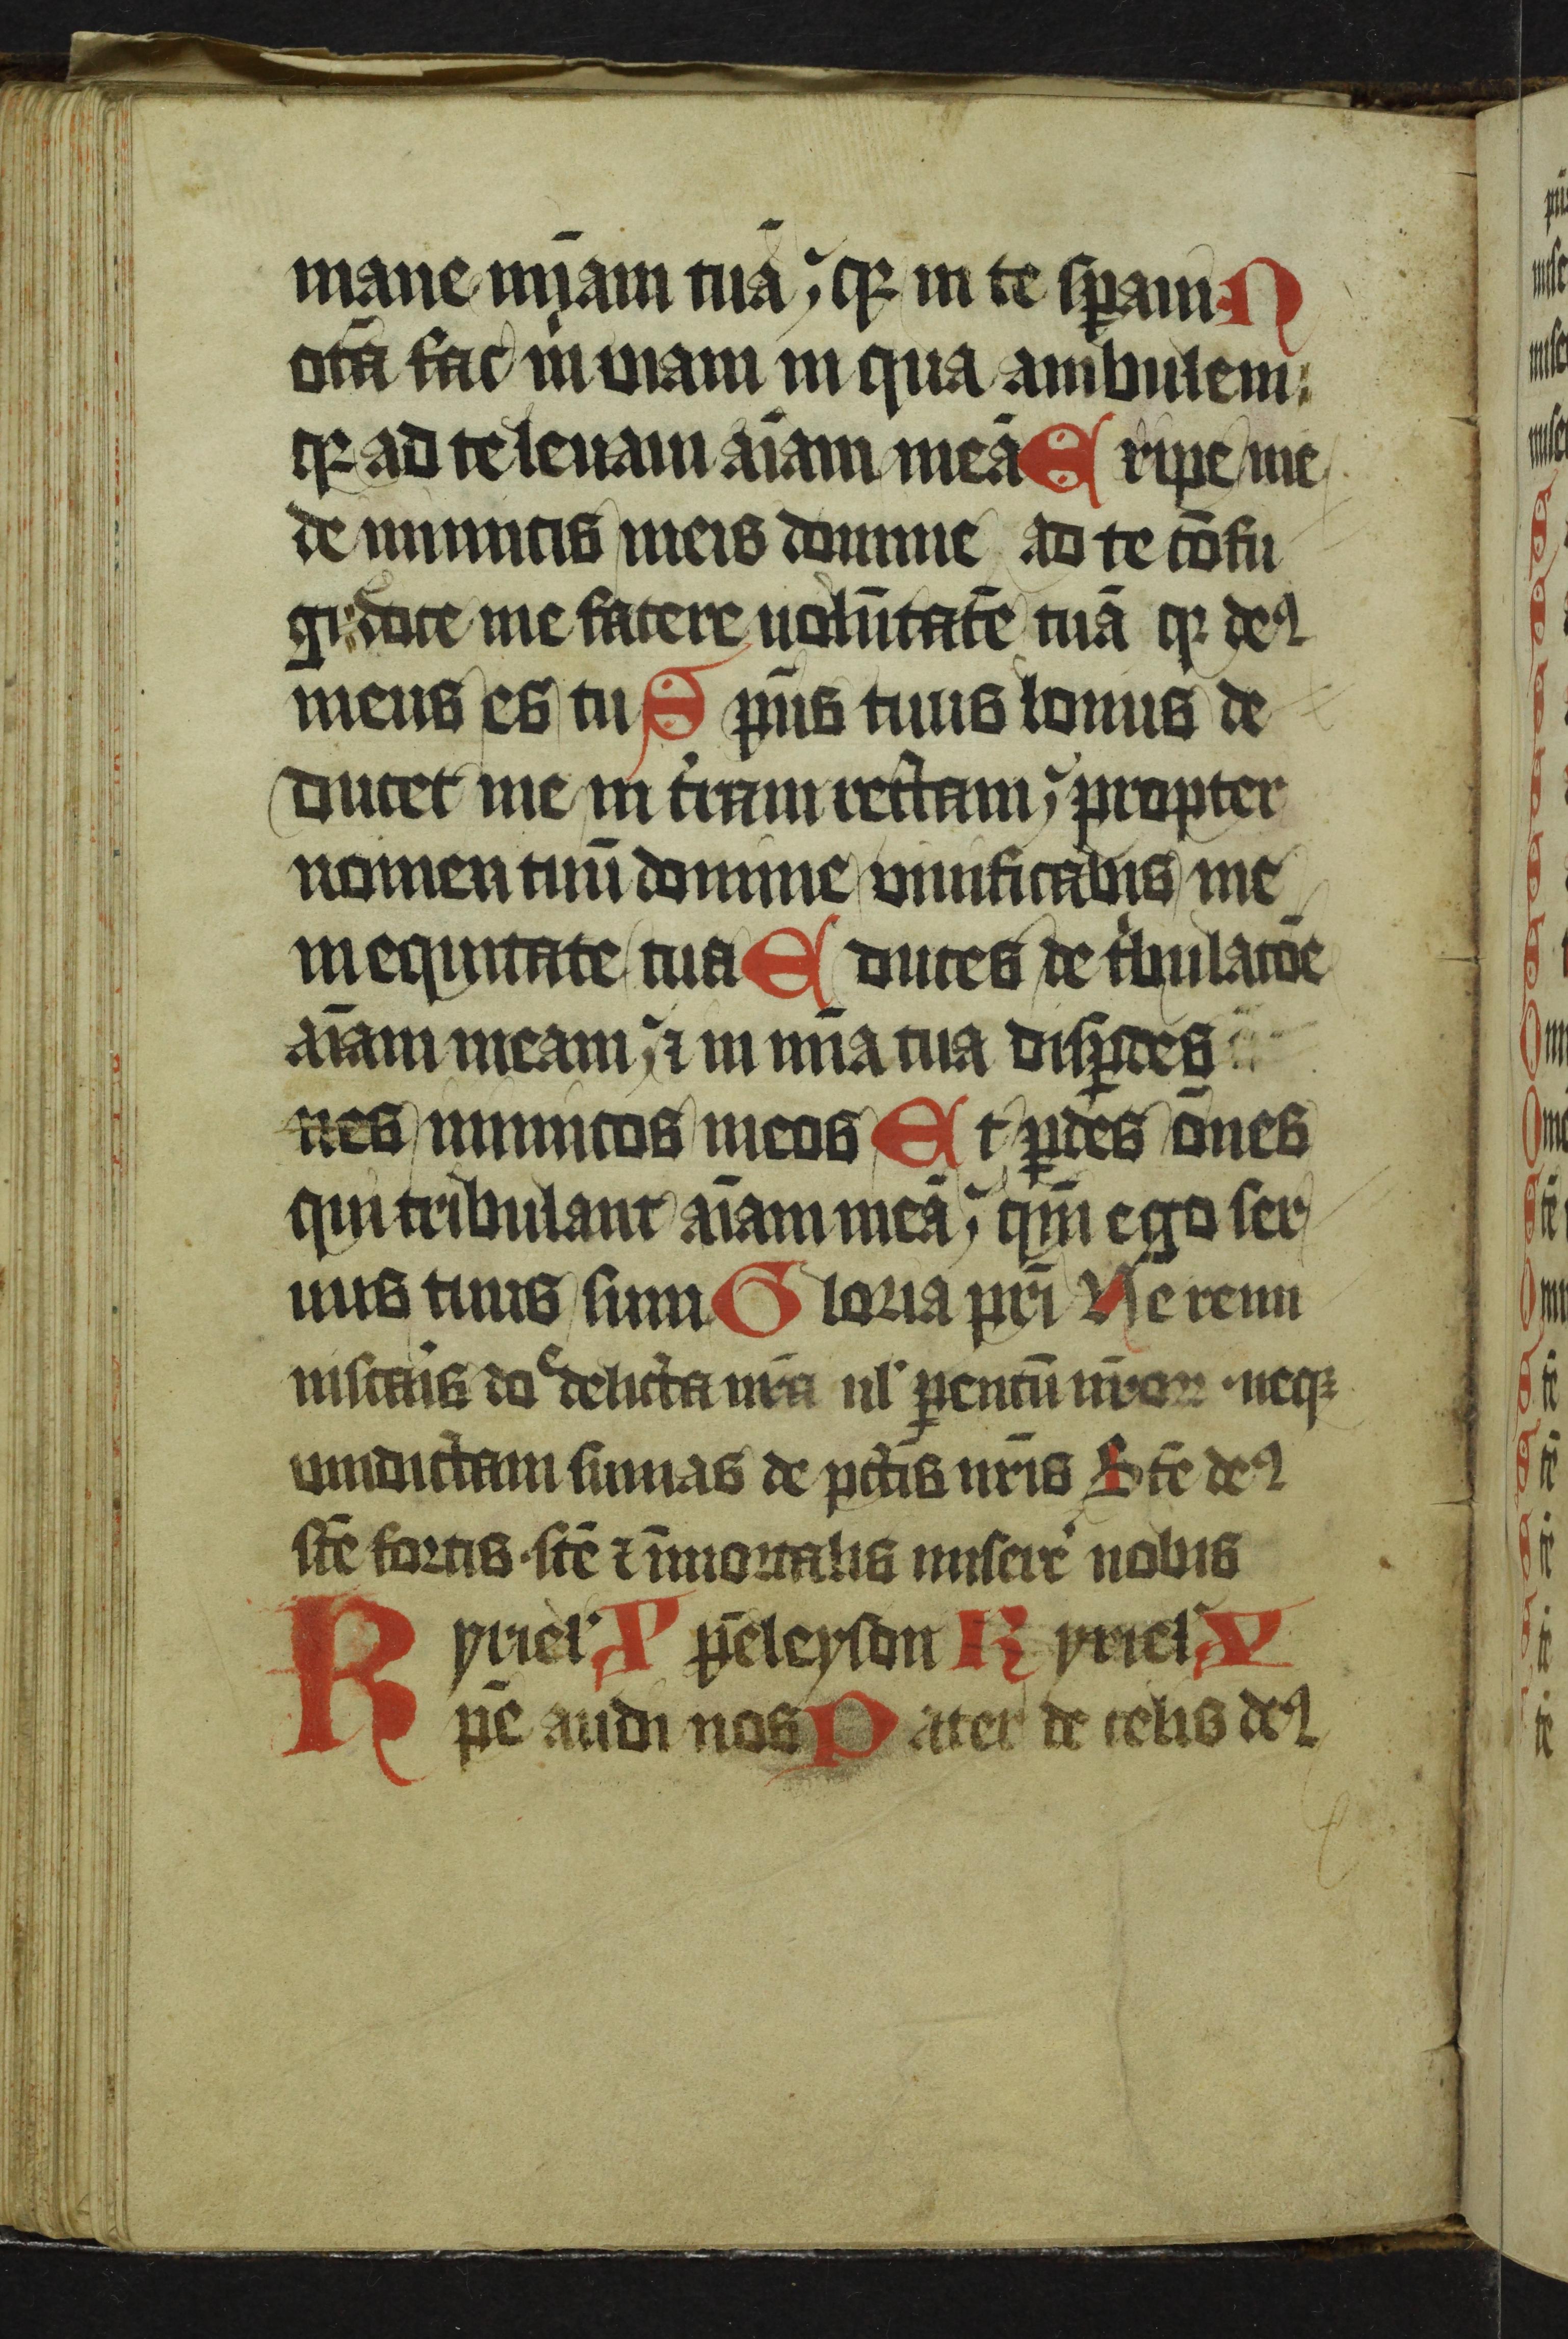 mane mīam tuā ꝙ in te sꝑaui N
otā fac m̄ uiam in qua ambulem:
ꝙ ad te leuaui aīam meā E ripe me
de inimicis meis domine ad te cōfu
gi: doce me facere uolūtatē tuā ꝙ deꝰ
meus es tu S pūs tuus bonus de
ducet me in t̄ram rectam propter
nomen tuū domine uiuificabis me
in equitate tua E duces de t̄bulacōe
aīam meam ⁊ in mīa tua disꝑdes
nes inimicos meos E t ꝑdes ōnes
qui tribulant aīam meā qm̄ ego ser
uus tuus sum G loria pri Ne remi
niscaris do delicta nrā ul ꝑentū nr̄oꝝ · neqꝫ
uindictam sumas de pctīs nrīs Stē deꝰ
stē fortis · stē ⁊ īmortalis misere nobis
K yriel X peleyson K yriel X
pe audi nos P ater de celis deꝰ